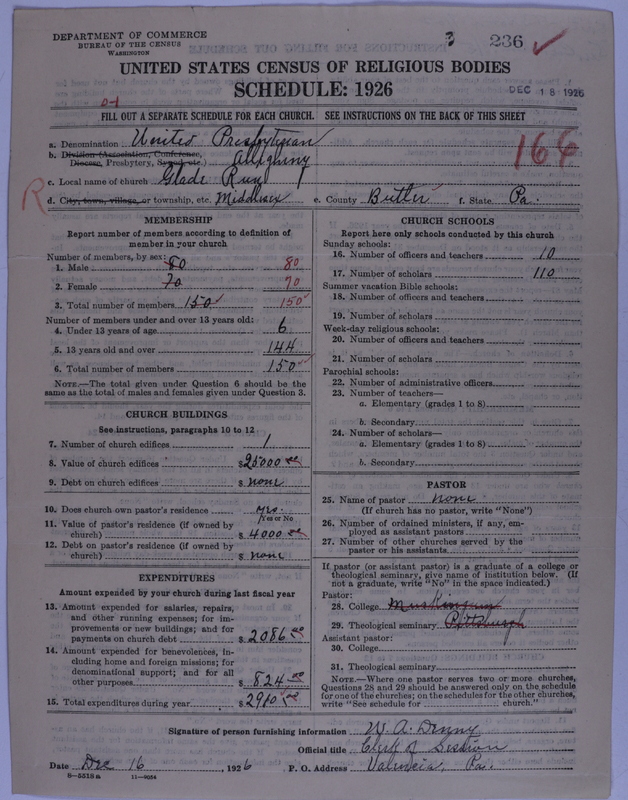 DEPARTMENT OF COMMERCE
BUREAU OF THE CENSUS
WASHINGTON
3 236
UNITED STATES CENSUS OF RELIGIOUS BODIES
SCHEDULE: 1926
DEC 18 1926
0-1
FILL OUT A SEPARATE SCHEDULE FOR EACH CHURCH. SEE INSTRUCTIONS ON THE BACK OF THIS SHEET
a. Denomination United Presbyterian
b. Division (Association, Conference, Diocese, Presbytery, Synod, etc.) Allegheny
166
c. Local name of church Glade Run
R
d. City, town, village, or township, etc. Middlesex e. County Butler f. State Pa.
MEMBERSHIP
Report number of members according to definition of
member in your church
Number of members, by sex:
1. Male 80 80
2. Female 70 70
3. Total number of members 150 150
Number of members under and over 13 years old:
4. Under 13 years of age 6
5. 13 years old and over 144
6. Total number of members 150
NOTE.—The total given under Question 6 should be the
same as the total of males and females given under Question 3.
CHURCH BUILDINGS
See instructions, paragraphs 10 to 12
7. Number of church edifices 1
8. Value of church edifices $25000 00
9. Debt on church edifices $ none
10. Does church own pastor's residence yes.
(Yes or No)
11. Value of pastor's residence (if owned by
church) $4000 00
12. Debt on pastor's residence (if owned by
church) $ none
EXPENDITURES
Amount expended by your church during last fiscal year
13. Amount expended for salaries, repairs,
and other running expenses; for im-
provements or new buildings; and for
payments on church debt $2086 00
14. Amount expended for benevolences, in-
cluding home and foreign missions; for
denominational support; and for all
other purposes $824 00
15. Total expenditures during year $2910 00
CHURCH SCHOOLS
Report here only schools conducted by this church
Sunday schools:
16. Number of officers and teachers 10
17. Number of scholars 110
Summer vacation Bible schools:
18. Number of officers and teachers
19. Number of scholars
Week-day religious schools:
20. Number of officers and teachers
21. Number of scholars
Parochial schools:
22. Number of administrative officers
23. Number of teachers—
a. Elementary (grades 1 to 8)
b. Secondary
24. Number of scholars—
a. Elementary (grades 1 to 8)
b. Secondary
PASTOR
25. Name of pastor none
(If church has no pastor, write "None")
26. Number of ordained ministers, if any, em-
ployed as assistant pastors
27. Number of other churches served by the
pastor or his assistants
If pastor (or assistant pastor) is a graduate of a college or
theological seminary, give name of institution below. (If
not a graduate, write "No" in the space indicated.)
Pastor:
28. College Muskingum
29. Theological seminary Pittsburgh
Assistant pastor:
30. College
31. Theological seminary
NOTE.—Where one pastor serves two or more churches,
Questions 28 and 29 should be answered only on the schedule
for one of the churches; on the schedules for the other churches,
write "See schedule for church."
Signature of person furnishing information W. A. Denny
Official title Clerk of Session
Date Dec 16, 1926 P. O. Address Valencia, Pa.
8—5518a 11—9054